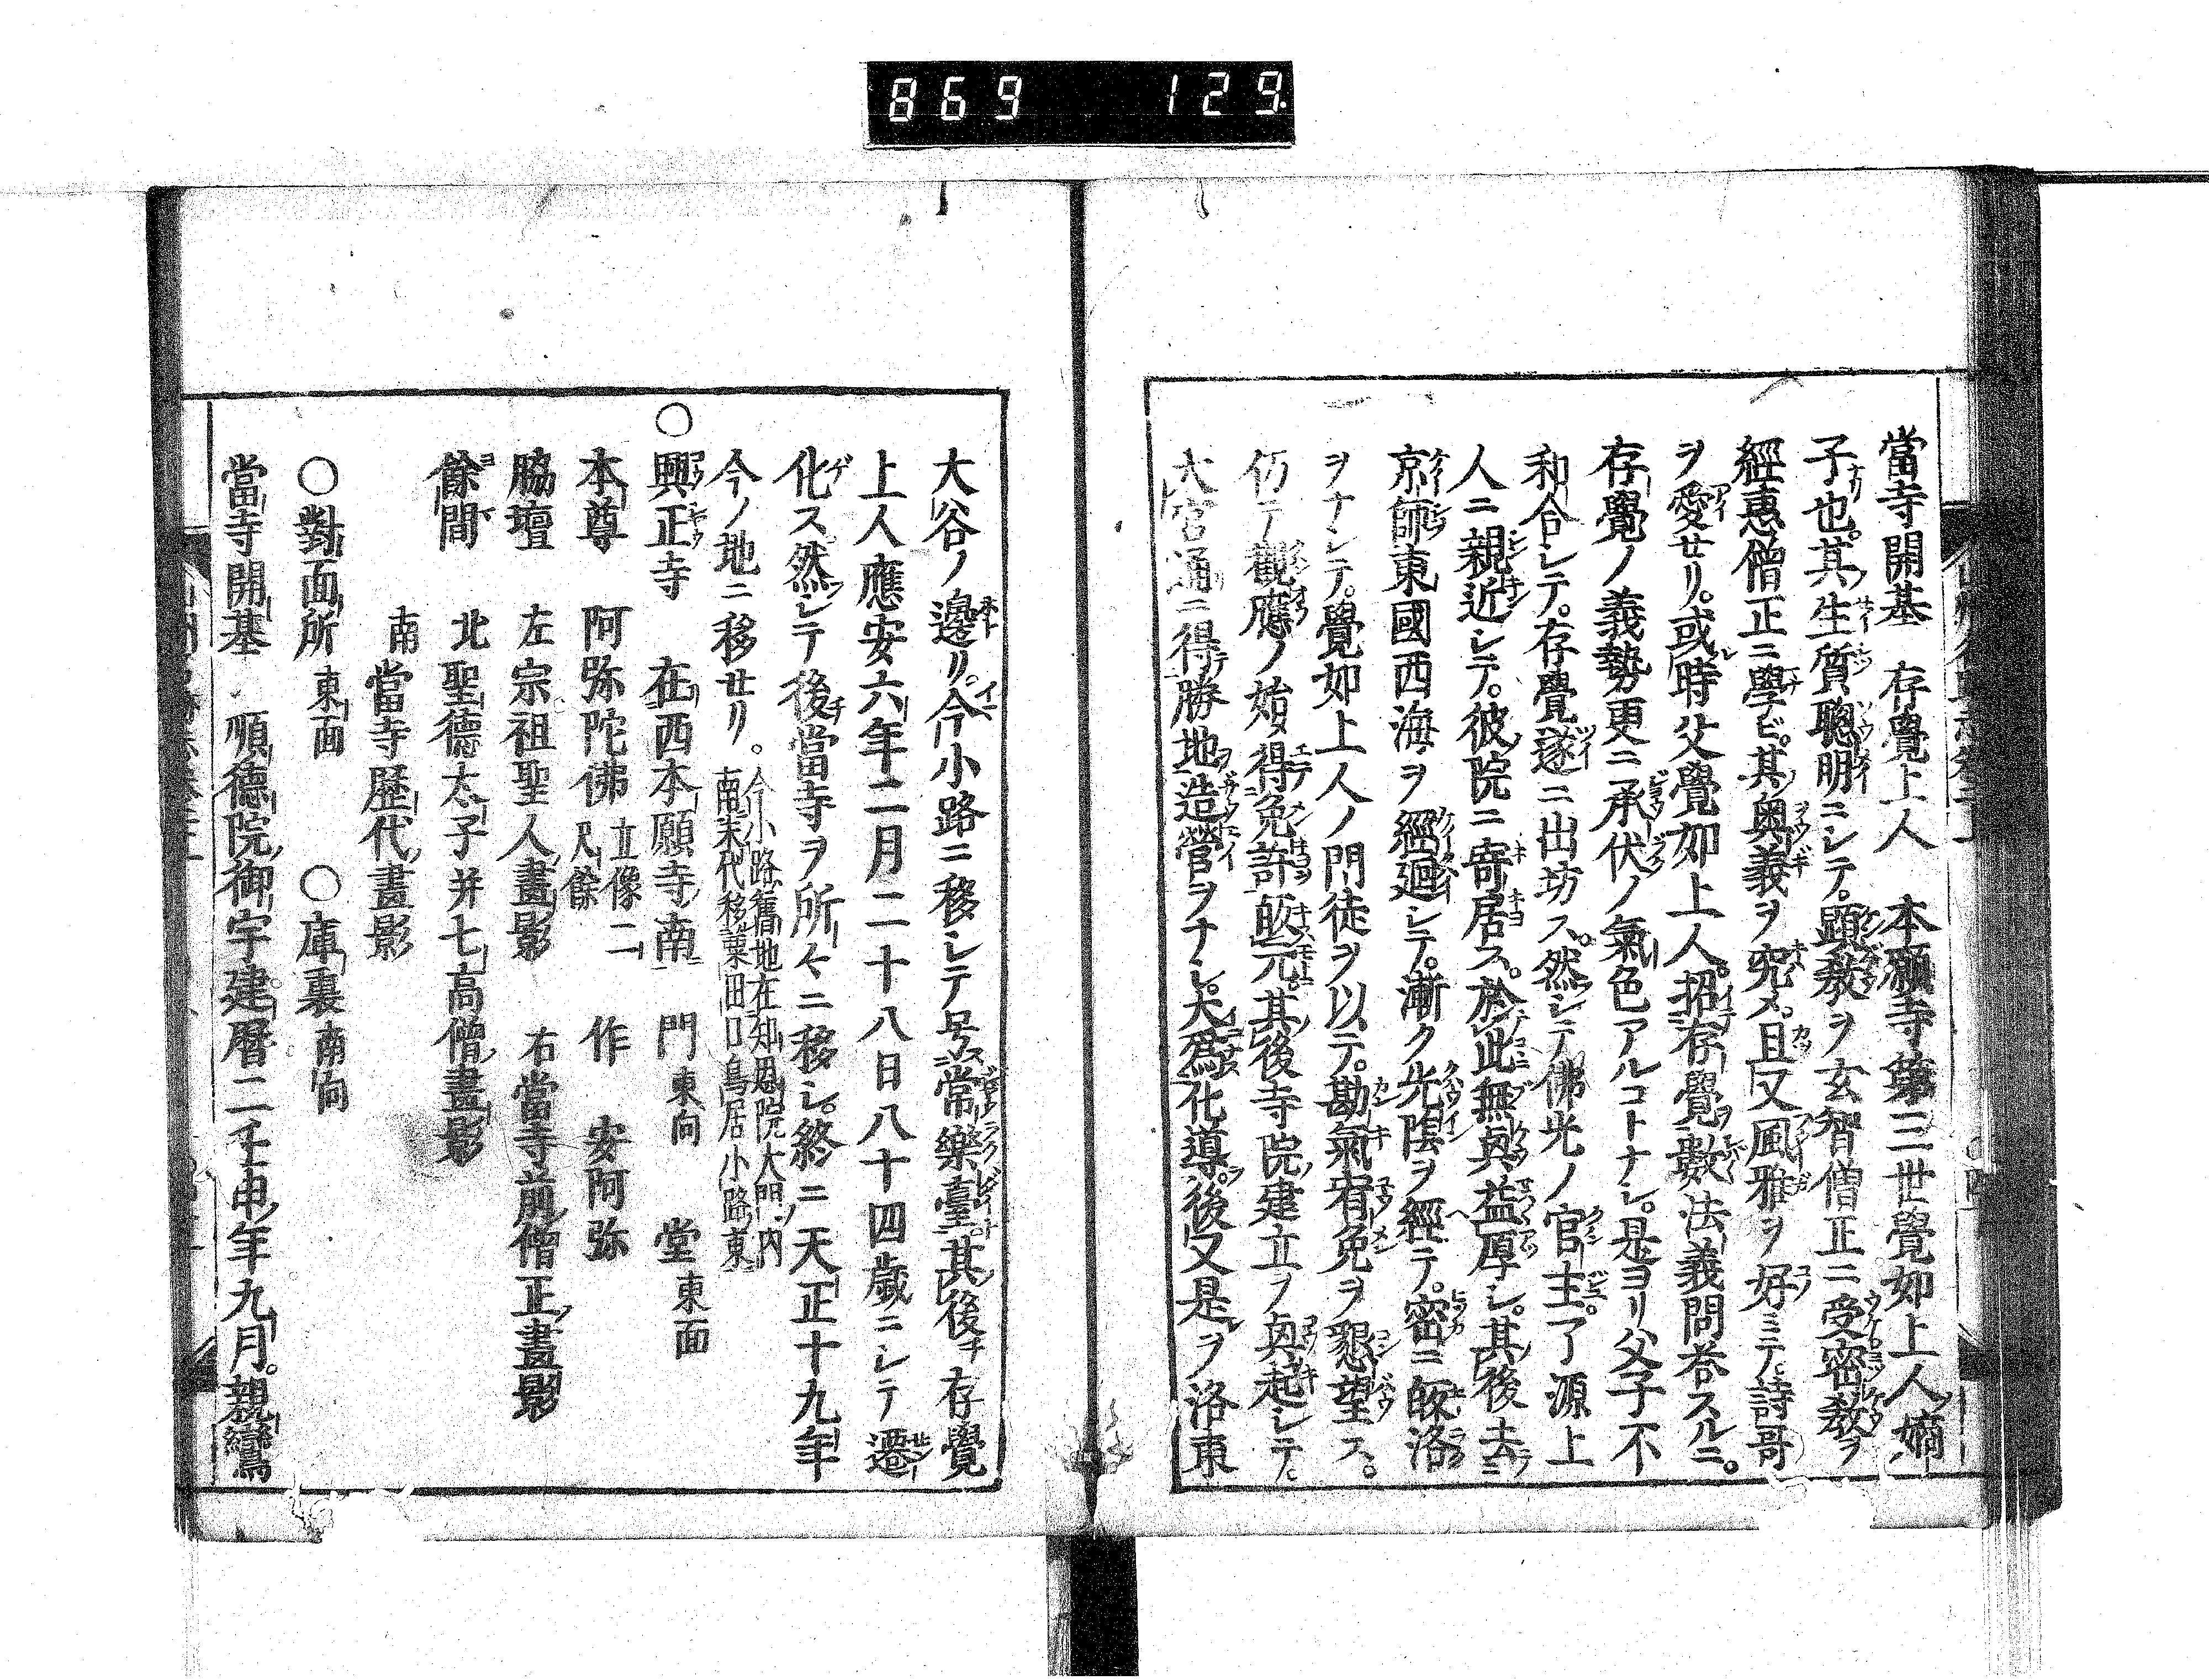 869 129
當寺開基 存覺上人 本願寺第三世覺如上人ノ嫡
子也。其生質聰明ニシテ。顕教ヲ玄智僧正ニ受密教ヲ
經惠僧正ニ學ビ。其奥義ヲ究メ。且又風雅ヲ好ミテ。詩哥
ヲ愛セリ。或時父覺如上人。招存覺數法義問答スルニ。
存覺ノ義勢更ニ承伏ノ氣色アルコトナシ。是ヨリ父子不
和合シテ。存覺遂ニ出坊ス。然シテ佛光ノ官主。了源上
人ニ親近シテ。彼院ニ寄居ス。於此無與益厚シ。其後去
京師東國西海ヲ經廻シテ。漸ク光陰ヲ經テ。密ニ皈洛
ヲナシテ。覺如上人ノ門徒ヲ以テ。勘氣宥免ヲ懇望ス。
仍テ觀應ノ始メ得免許皈元。其後寺院建立ヲ興起シテ。
大宮通ニ得勝地造營ヲナシ。大爲化導。後又是ヲ洛東
大谷ノ邊リ。今小路ニ移シテ号常樂臺。其後チ存覺
上人應安六年二月二十八日八十四歳ニシテ遷
化ス然シテ後當寺ヲ所々ニ移シ。終ニ天正十九年
今ノ地ニ移セリ。今小路舊地在知恩院大門ノ内
南末代移粟田口鳥居小路東
○興正寺 在西本願寺南 門東向 堂東面
本尊 阿弥陀佛 立像二尺餘 作 安阿弥
脇壇 左宗祖聖人畫影 右當寺前僧正畫影
餘間 北聖德太子并七高僧畫影
南當寺歴代畫影
○對面所 東面 ○庫裏 南向
當寺開基 順德院御宇建暦二壬申年九月。親鸞